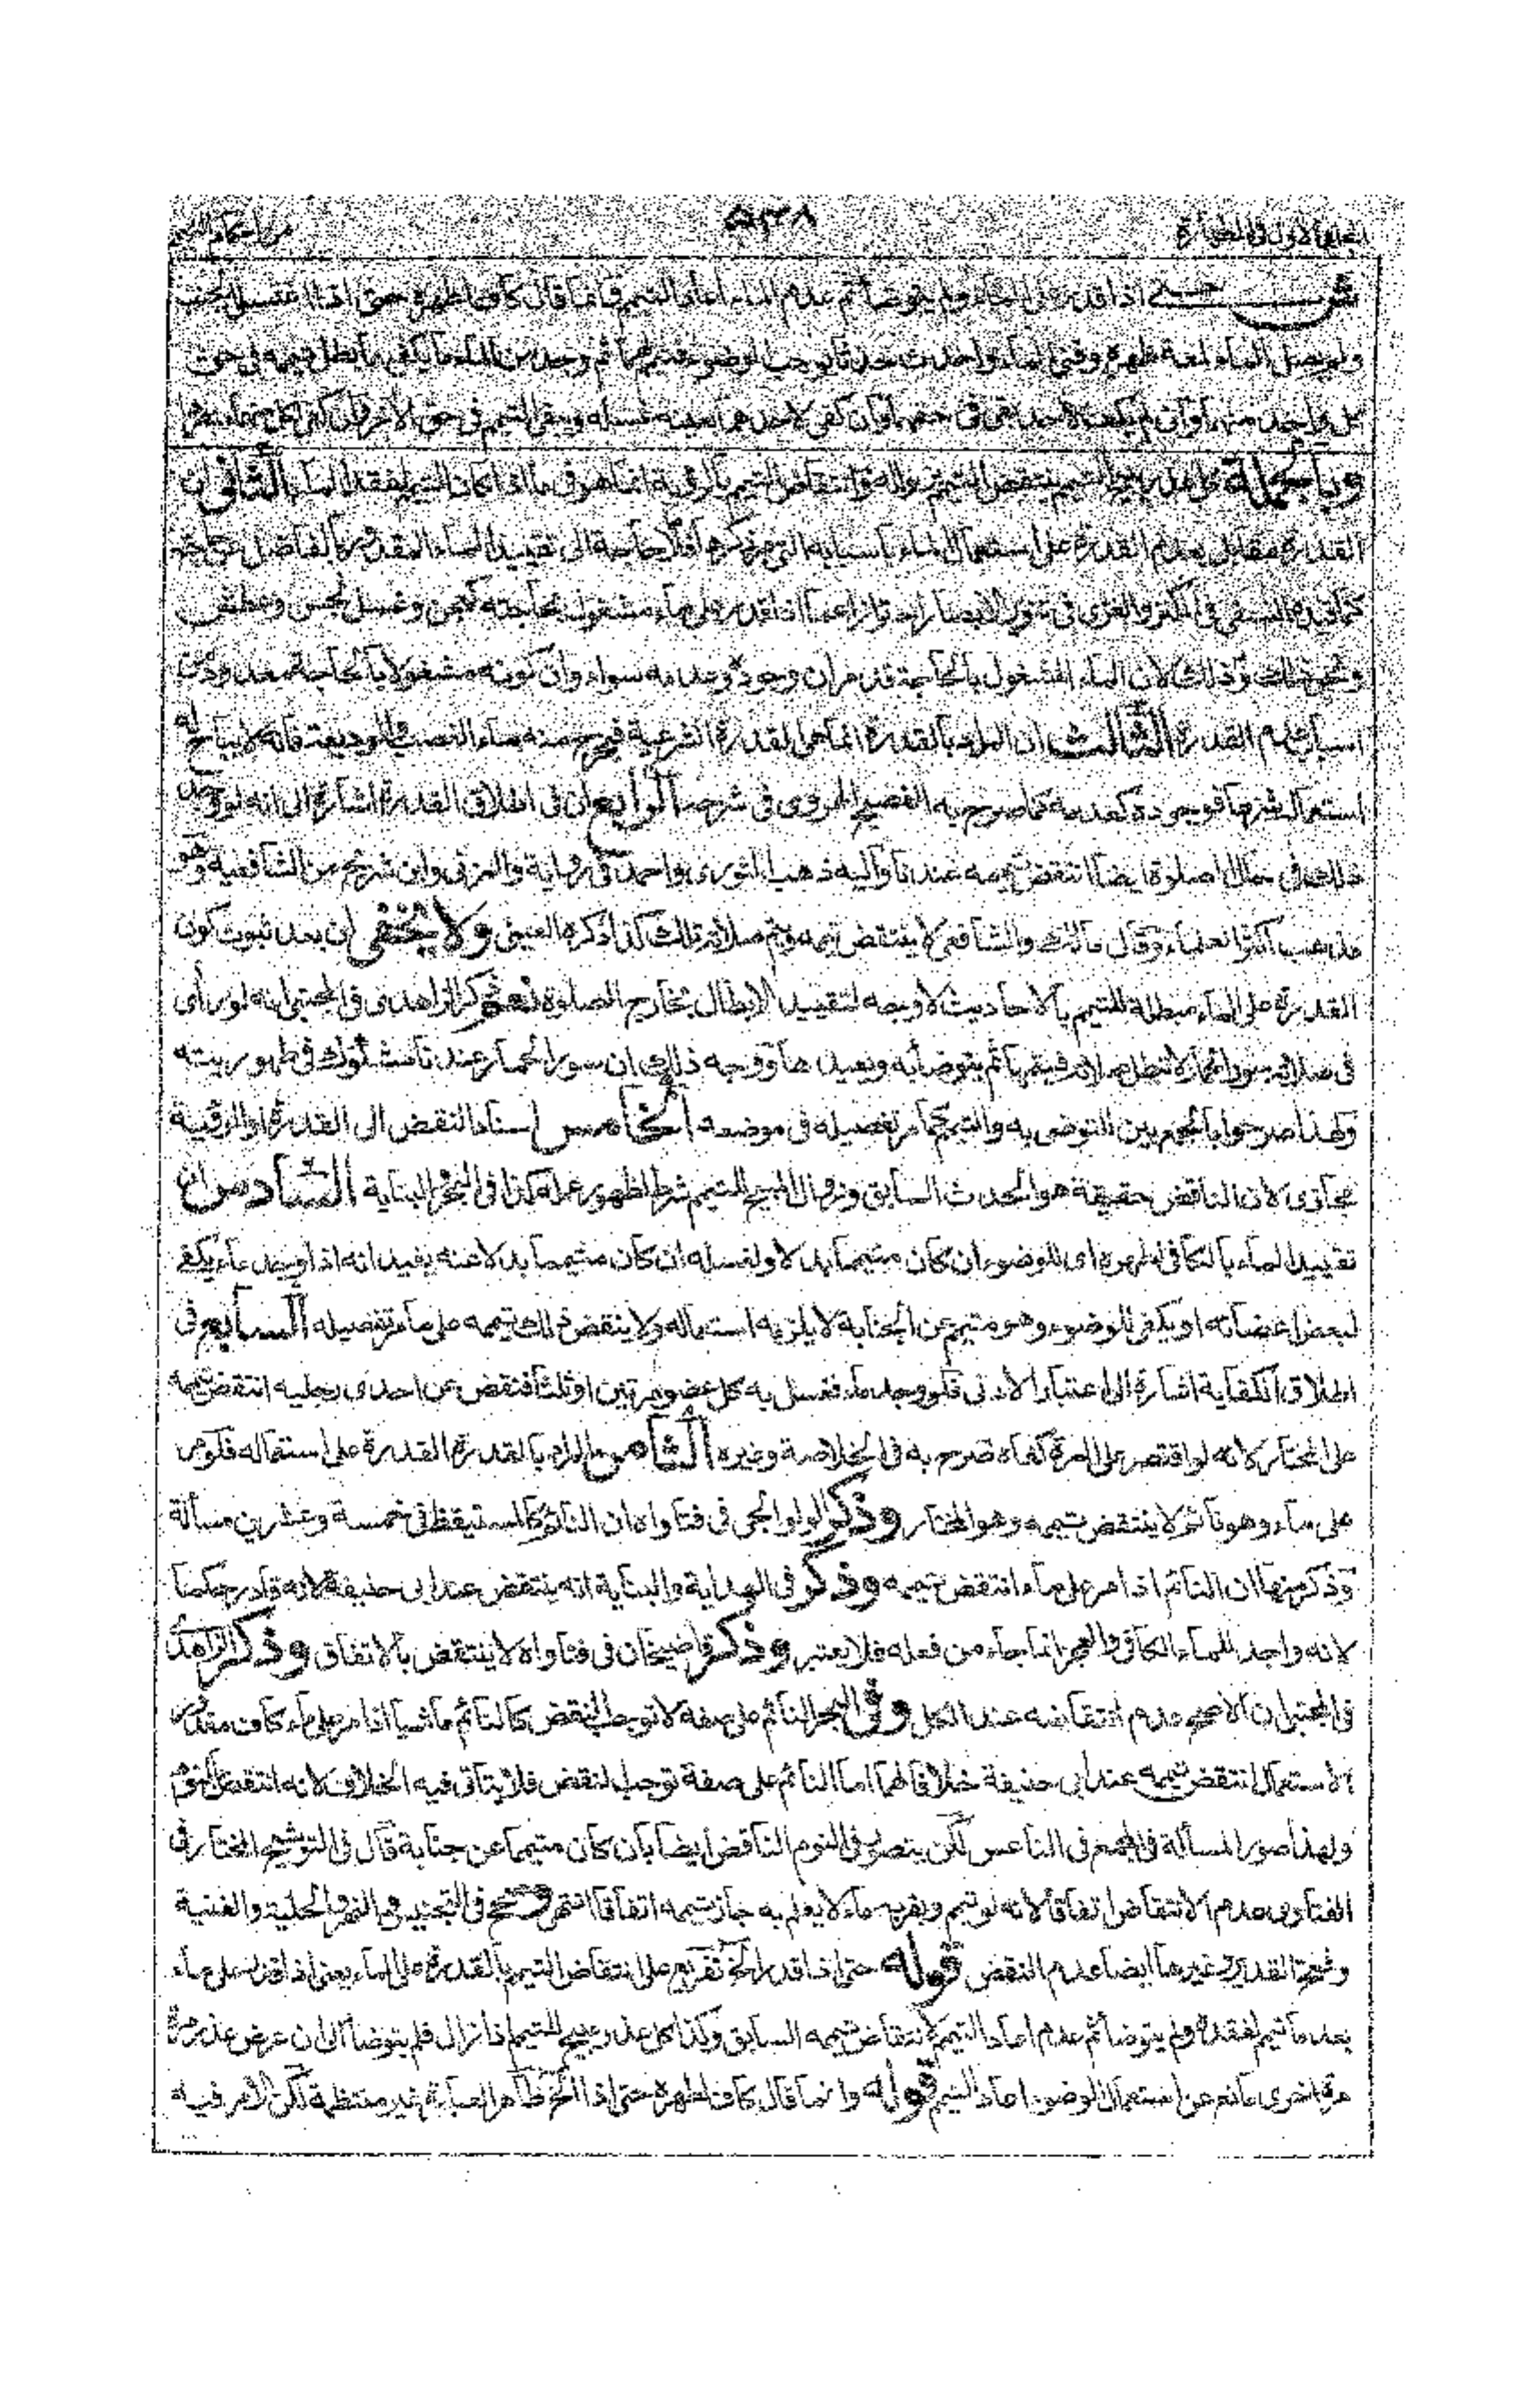 المجلد الاول فى الطهارة ٥٣٨ من احكام التيمم
ش حتى اذا قدر على الماء ولم يتوضأ ثم عدم الماء اعاد التيمم وانما قال كاف لطهره حتى اذا اغتسل الجنب
ولم يصل الماء لمعة ظهره وفنى الماء واحدث حدثا يوجب الوضوء فتيمم لهما ثم وجد من الماء ما يكفيهما بطل تيممه فى حق
كل واحد منهما وان لم يكف لاحدهما بقى فى حقهما وان كفى لاحدهما بعينه غسله ويبقى التيمم فى حق الآخر وان كفى لكل منفردا
وبالجملة التيمم ينتقض التيمم بزواله وانتقاض التيمم بالرؤية انما هو فى ما اذا كان التيمم لفقد الماء الثانى ان
القدرة مقابل بعدم القدرة على استعمال الماء باسبابه التى مر ذكرها فلا حاجة الى تقييد الماء المقدور بالفاضل عن حاجته
كما قيده النسفى فى الكنز والغزى فى تنوير الابصار احترازا عما اذا قدر على ماء مشغول بحاجته كعجن وغسل نجس وعطش
ونحو ذلك وذلك لان الماء المشغول بالحاجة قد مر ان وجوده وعدمه سواء وان كونه مشغولا بالحاجة معدود من
اسباب عدم القدرة الثالث ان المراد بالقدرة انما هى القدرة الشرعية فيخرج منه ماء الغصب والوديعة فانه لا يباح له
استعمال شرعا فوجوده كعدمه كما صرح به الفصيح الهروى فى شرحه الرابع ان فى اطلاق القدرة اشارة الى انه لو وجد
ذلك فى خلال صلوة ايضا انتقض تيممه عندنا واليه ذهب الثورى واحمد فى رواية والمزنى وابن شريح من الشافعية وهو
مذهب اكثر العلماء وقال مالك والشافعى لا ينتقض تيممه ويتم صلاته تلك كذا ذكره العينى ولا يخفى ان بعد ثبوت كون
القدرة على الماء مبطلة للتيمم بالاحاديث لا وجه لتقييد الابطال بخارج الصلوة نعم ذكر الزاهدى فى المجتبى انه لو رأى
فى صلاته سور الحمار لا تبطل صلاته فيتمها ثم يتوضأ به ويعيدها ووجه ذلك ان سور الحمار عندنا مشكوك فى طهوريته
ولهذا صرحوا بالجمع بين التوضى به والتيمم كما مر تفصيله فى موضعه الخامس اسناد النقض الى القدرة او الرؤية
مجازى لان الناقض حقيقة هو الحدث السابق وزوال المبيح للتيمم شرط لظهور عمله كذا فى البحر والبناية السادس ان
تقييد الماء بالكافى لطهره اى للوضوء ان كان متيمما بدلا ولغسله ان كان متيمما بدلا عنه يفيد انه اذا وجد ماء يكفى
لبعض اعضائه او يكفى للوضوء وهو متيمم عن الجنابة لا يلزمه استعماله ولا ينتقض ذلك تيممه على ما مر تفصيله السابع فى
اطلاق الكفاية اشارة الى اعتبار الادنى فلو وجد ماء فغسل به كل عضو مرتين او ثلثا فنقض عن احدى رجليه انتقض تيممه
على المختار لانه لو اقتصر على المرة كفاه صرح به فى الخلاصة وغيره الثامن المراد بالقدرة القدرة على استعماله فلو مر
على ماء وهو نائم لا ينتقض تيممه وهو المختار وذكر الولوالجى فى فتاواه ان النائم كالمستيقظ فى خمسة وعشرين مسألة
وذكر منها ان النائم اذا مر على ماء انتقض تيممه وذكر فى الهداية والبناية انه ينتقض عند ابى حنيفة لانه قادر حكما
لانه واجد للماء الكافى والعجز انما جاء من فعله فلا يعتبر وذكر قاضيخان فى فتاواه لا ينتقض بالاتفاق وذكر الزاهدى
فى المجتبى ان الاصح عدم انتقاضه عند الكل وفى البحر النائم على صفة لا توجب النقض كالنائم ماشيا اذا مر على ماء كاف مقدور
الاستعمال انتقض تيممه عند ابى حنيفة خلافا لهما اما النائم على صفة توجب النقض فلا يتأتى فيه الخلاف لانه انتقض بالنوم
ولهذا صور المسألة فى المجمع فى الناعس لكن يتصور فى النوم الناقض ايضا بان كان متيمما عن جنابة قال فى التوشيح المختار فى
الفتاوى عدم الانتقاض اتفاقا لانه لو تيمم وبقربه ماء لا يعلم به جاز تيممه اتفاقا انتهى وصحح فى التجنيس والنهر والحلية والغنية
وفتح القدير وغيرها ايضا عدم النقض قوله حتى اذا قدر الخ تفريع على انتقاض التيمم بالقدرة على الماء يعنى اذا قدر على ماء
بعد ما تيمم لفقده ولم يتوضأ ثم عدم اعاد التيمم لانتقاض تيممه السابق وكذا كل عذر مبيح للتيمم اذا زال فلم يتوضأ الى ان عرض عذر مرة
مرة اخرى مانع عن استعمال الوضوء اعاد التيمم قوله وانما قال كاف لطهره حتى اذا الخ ظاهر العبارة غير منتظمة لكن الامر فيه